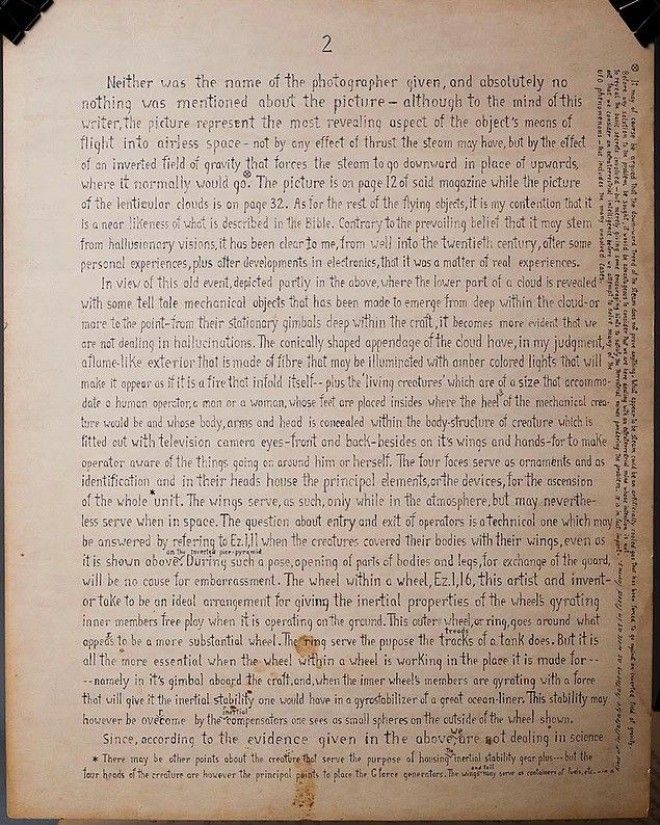 2
Neither was the name of the photographer given, and absolutely no
nothing was mentioned about the picture — although to the mind of this
writer, the picture represent the most revealing aspect of the object's means of
flight into airless space - not by any effect of thrust the steam may have, but by the effect
of an inverted field of gravity that forces the steam to go downward in place of upwards,
where it normally would go.⊗ The picture is on page 12 of said magazine while the picture
of the lenticular clouds is on page 32. As for the rest of the flying objects, it is my contention that it
is a near likeness of what is described in the Bible. Contrary to the prevailing belief that it may stem
from hallusionary visions, it has been clear to me, from well into the twentieth century, after some
personal experiences, plus after developments in electronics, that it was a matter of real experiences.
In view of this old event, depicted partly in the above, where the lower part of a cloud is revealed
with some tell tale mechanical objects that has been made to emerge from deep within the cloud-or
more to the point-from their stationary gimbals deep within the craft, it becomes more evident that we
are not dealing in hallucinations. The conically shaped appendage of the cloud have, in my judgment,
a flame-like exterior that is made of fibre that may be illuminated with amber colored lights that will
make it appear as if it is a fire that infold itself -- plus the 'living creatures' which are of a size that accommo-
date a human operator, a man or a woman, whose feet are placed insides where the heels of the mechanical crea-
ture would be and whose body, arms and head is concealed within the body-structure of creature which is
fitted out with television camera eyes-front and back-besides on it's wings and hands-for to make
operator aware of the things going on around him or herself. The four faces serve as ornaments and as
identification and in their heads house the principal elements, or the devices, for the ascension
of the whole * unit. The wings serve, as such, only while in the atmosphere, but may neverthe-
less serve when in space. The question about entry and exit of operators is a technical one which may
be answered by refering to Ez.1,11 when the creatures covered their bodies with their wings, even as
it is shown above on the inverted pier-pyramid. During such a pose, opening of parts of bodies and legs, for exchange of the guard,
will be no cause for embarrassment. The wheel within a wheel, Ez.1,16, this artist and invent-
or take to be an ideal arrangement for giving the inertial properties of the wheel's gyrating
inner members free play when it is operating on the ground. This outer wheel, or ring, goes around what
appears to be a more substantial wheel. The ring serve the pupose the treads tracks of a tank does. But it is
all the more essential when the wheel within a wheel is working in the place it is made for --
-- namely in it's gimbal aboard the craft, and, when the inner wheel's members are gyrating with a force
that will give it the inertial stability one would have in a gyrostabilizer of a great ocean-liner. This stability may
however be overcome by the inertial compensators one sees as small spheres on the outside of the wheel shown.
Since, according to the evidence given in the above, we are not dealing in science
* There may be other points about the creature that serve the purpose of housing the inertial stability gear plus --- but the
four heads of the creature are however the principal points to place the G force generators. The wings and tail may serve as containers of fuels, etc.
⊗ It may of course be argued that the downward
UFO phenomenons